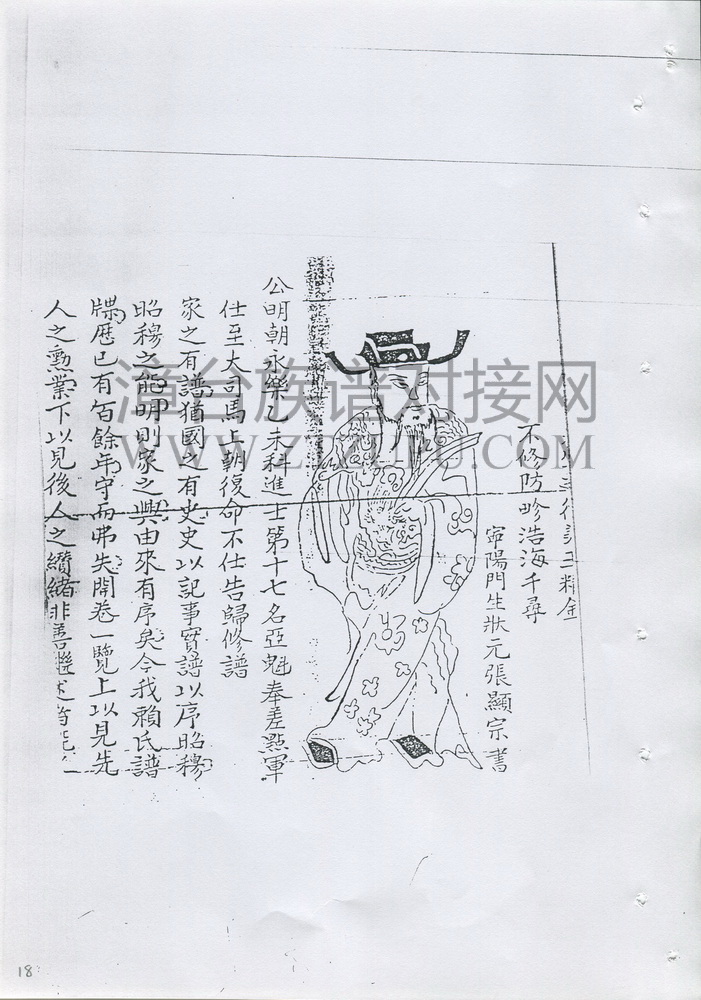 不修防畛浩海千尋
寧陽門生狀元張顯宗書
公明朝永樂乙未科進士第十七名亞魁奉差點軍
仕至大司馬上朝復命不仕告歸修譜
家之有譜猶國之有史史以記事實譜以序昭穆
昭穆之能明則家之興由來有序矣今我賴氏譜
牒歷已有百餘年守而弗失開卷一覽上以見先
人之勳業下以見後人之纘緒非善繼述
漳台族谱对接网
WWW.ZTZUPU.COM
18